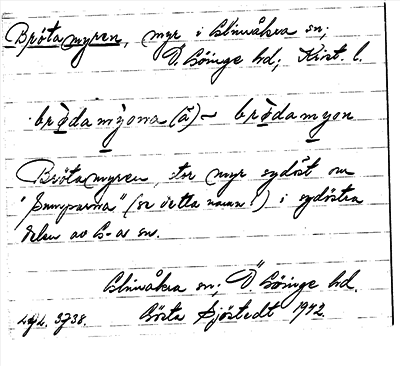 Brötamyren, myr i Glimåkra sn;
Ö. Göinge hd; Krist. l.
brödamyona (ā) – brödamyon
Brötamyren, stor myr sydöst om
"Sumparna" (se detta namn!) i sydöstra
delen av G-a sn.
Glimåkra sn; Ö. Göinge hd.
Gösta Sjöstedt 1942.
LGL. 3738.